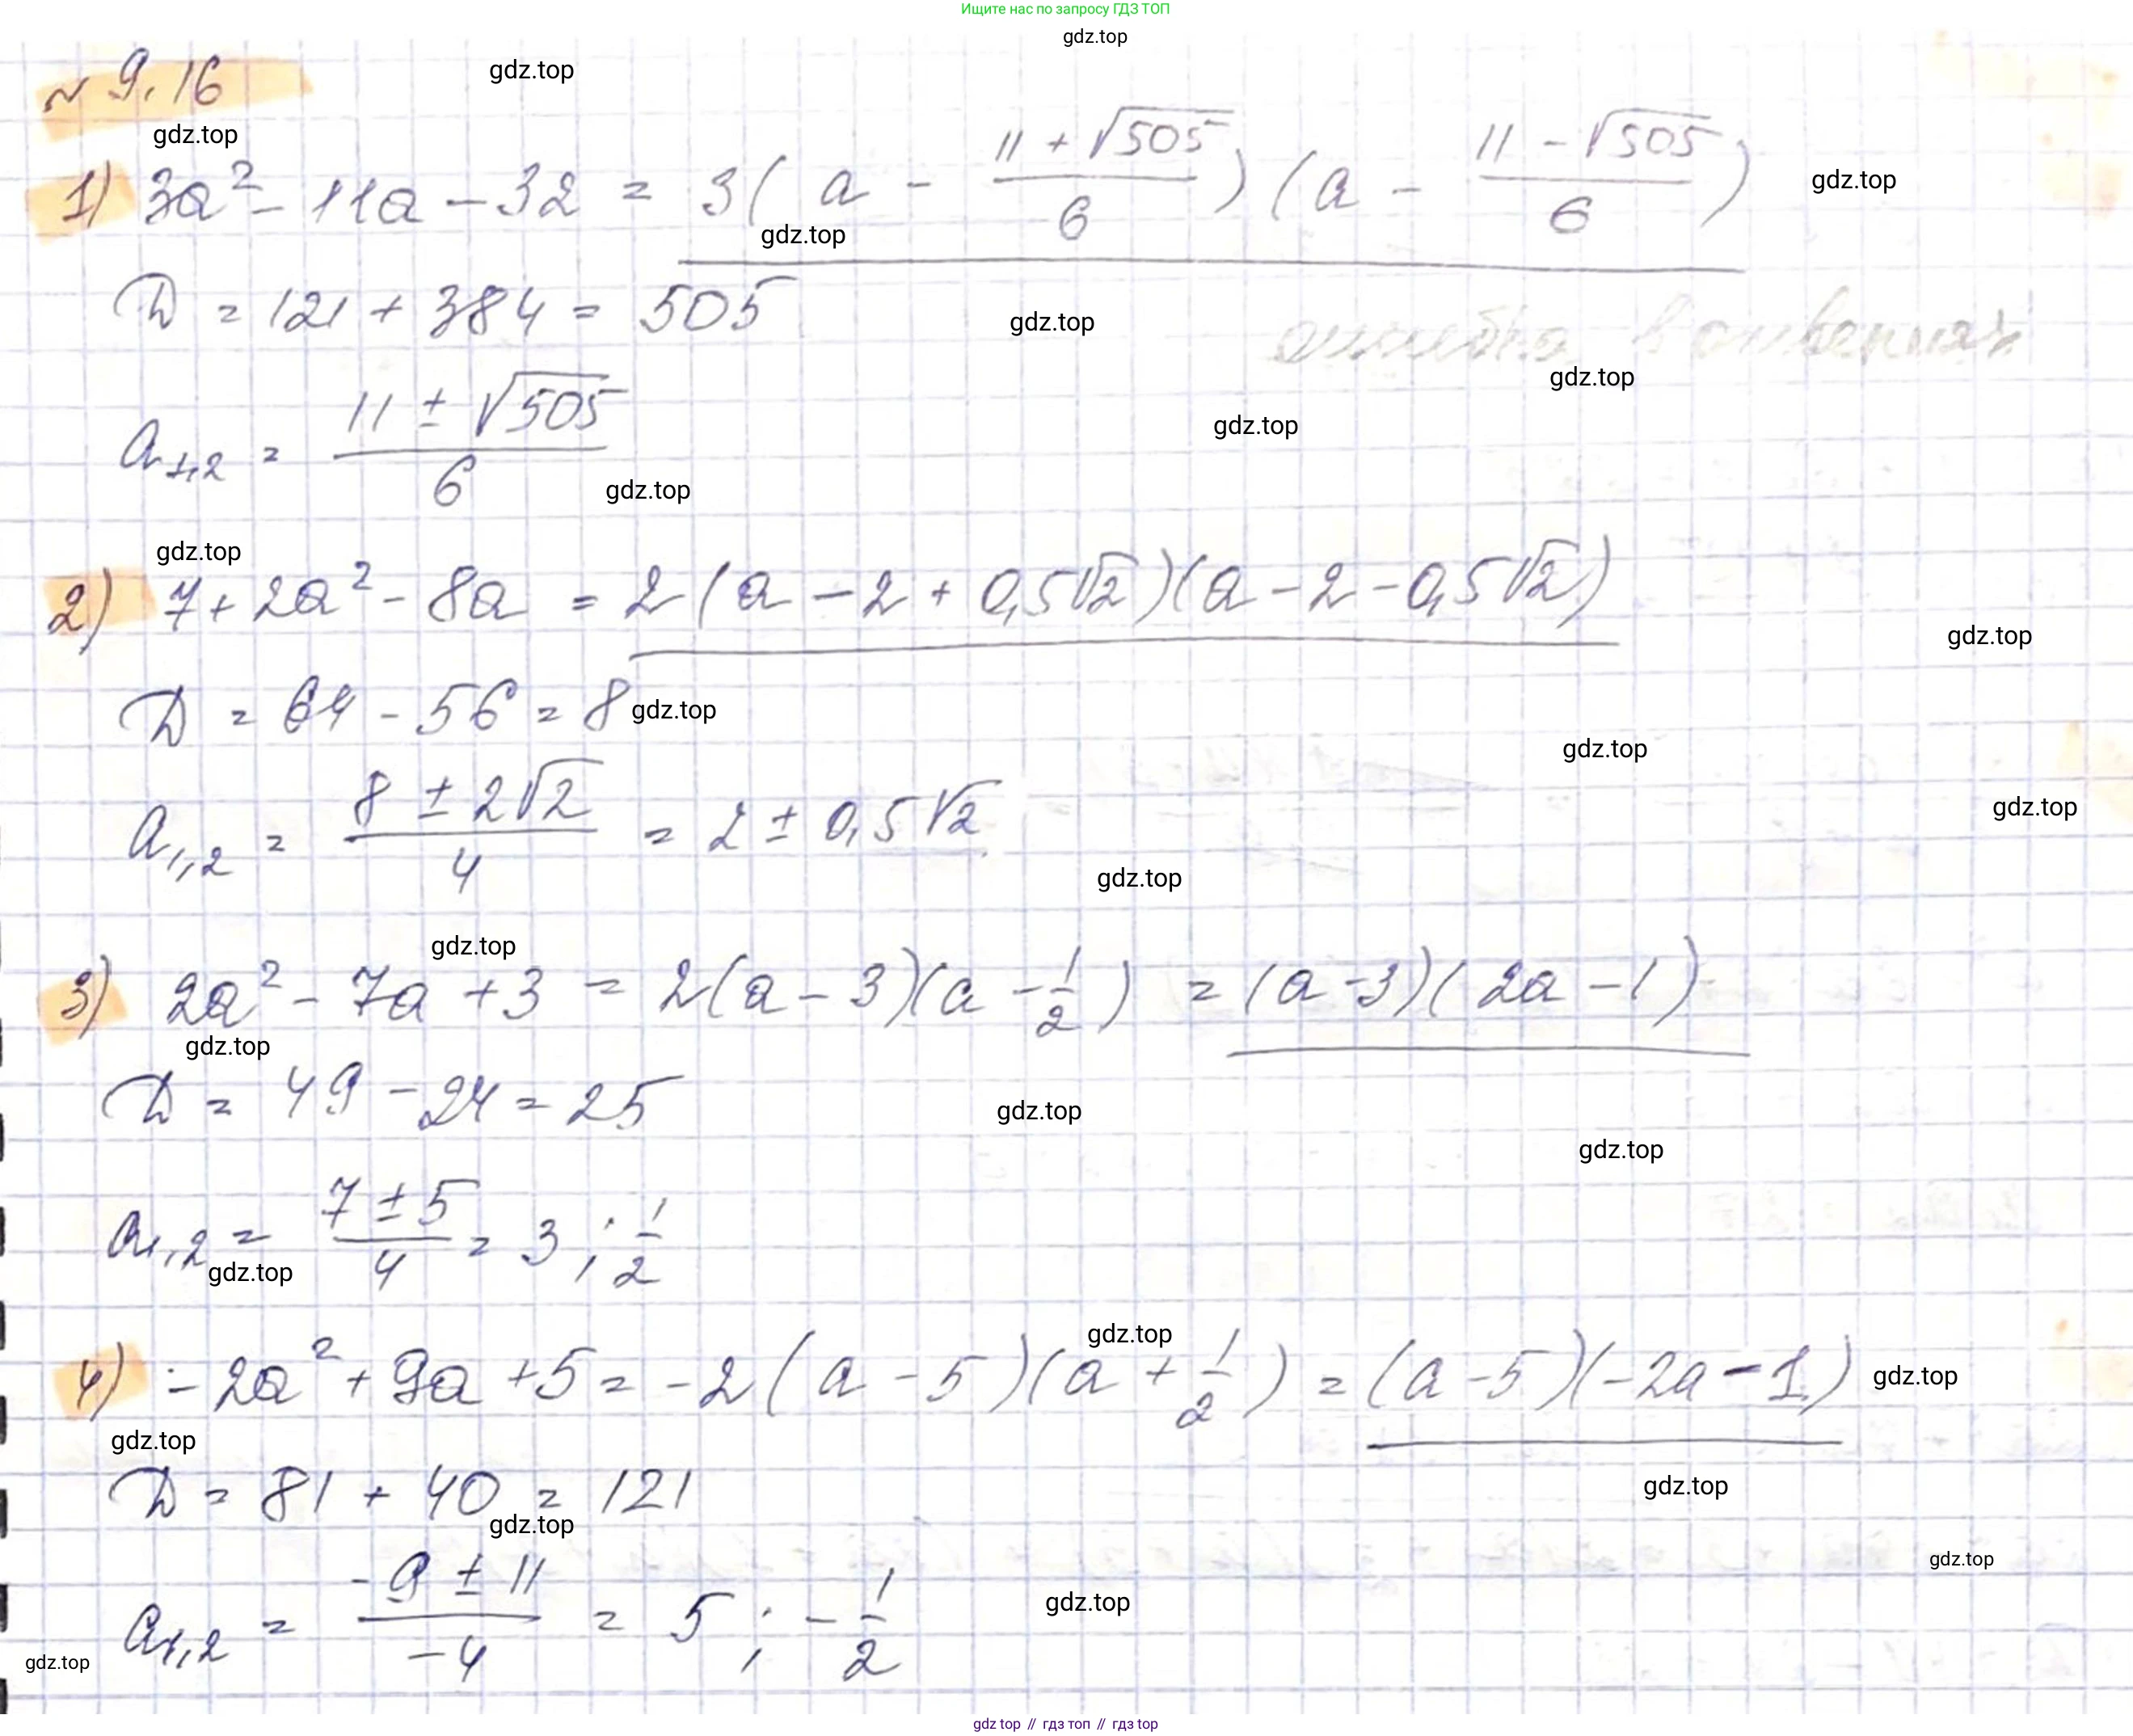 Ищите нас по запросу ГДЗ ТОП
gdz.top
gdz.top
№ 9.16
gdz.top
1) 3a² - 11a - 32 = 3(a - (11 + √505)/6)(a - (11 - √505)/6)
gdz.top
gdz.top
D = 121 + 384 = 505
gdz.top
ошибка в ответах
gdz.top
gdz.top
a₁,₂ = (11 ± √505)/6
gdz.top
gdz.top
2) 7 + 2a² - 8a = 2(a - 2 + 0,5√2)(a - 2 - 0,5√2)
gdz.top
D = 64 - 56 = 8
gdz.top
gdz.top
gdz.top
a₁,₂ = (8 ± 2√2)/4 = 2 ± 0,5√2
gdz.top
gdz.top
3) 2a² - 7a + 3 = 2(a - 3)(a - 1/2) = (a - 3)(2a - 1)
gdz.top
D = 49 - 24 = 25
gdz.top
gdz.top
a₁,₂ = (7 ± 5)/4 = 3 ; 1/2
gdz.top
gdz.top
4) -2a² + 9a + 5 = -2(a - 5)(a + 1/2) = (a - 5)(-2a - 1)
gdz.top
gdz.top
D = 81 + 40 = 121
gdz.top
gdz.top
gdz.top
a₁,₂ = (-9 ± 11)/-4 = 5 ; -1/2
gdz.top
gdz.top
gdz top // гдз топ // гдз top